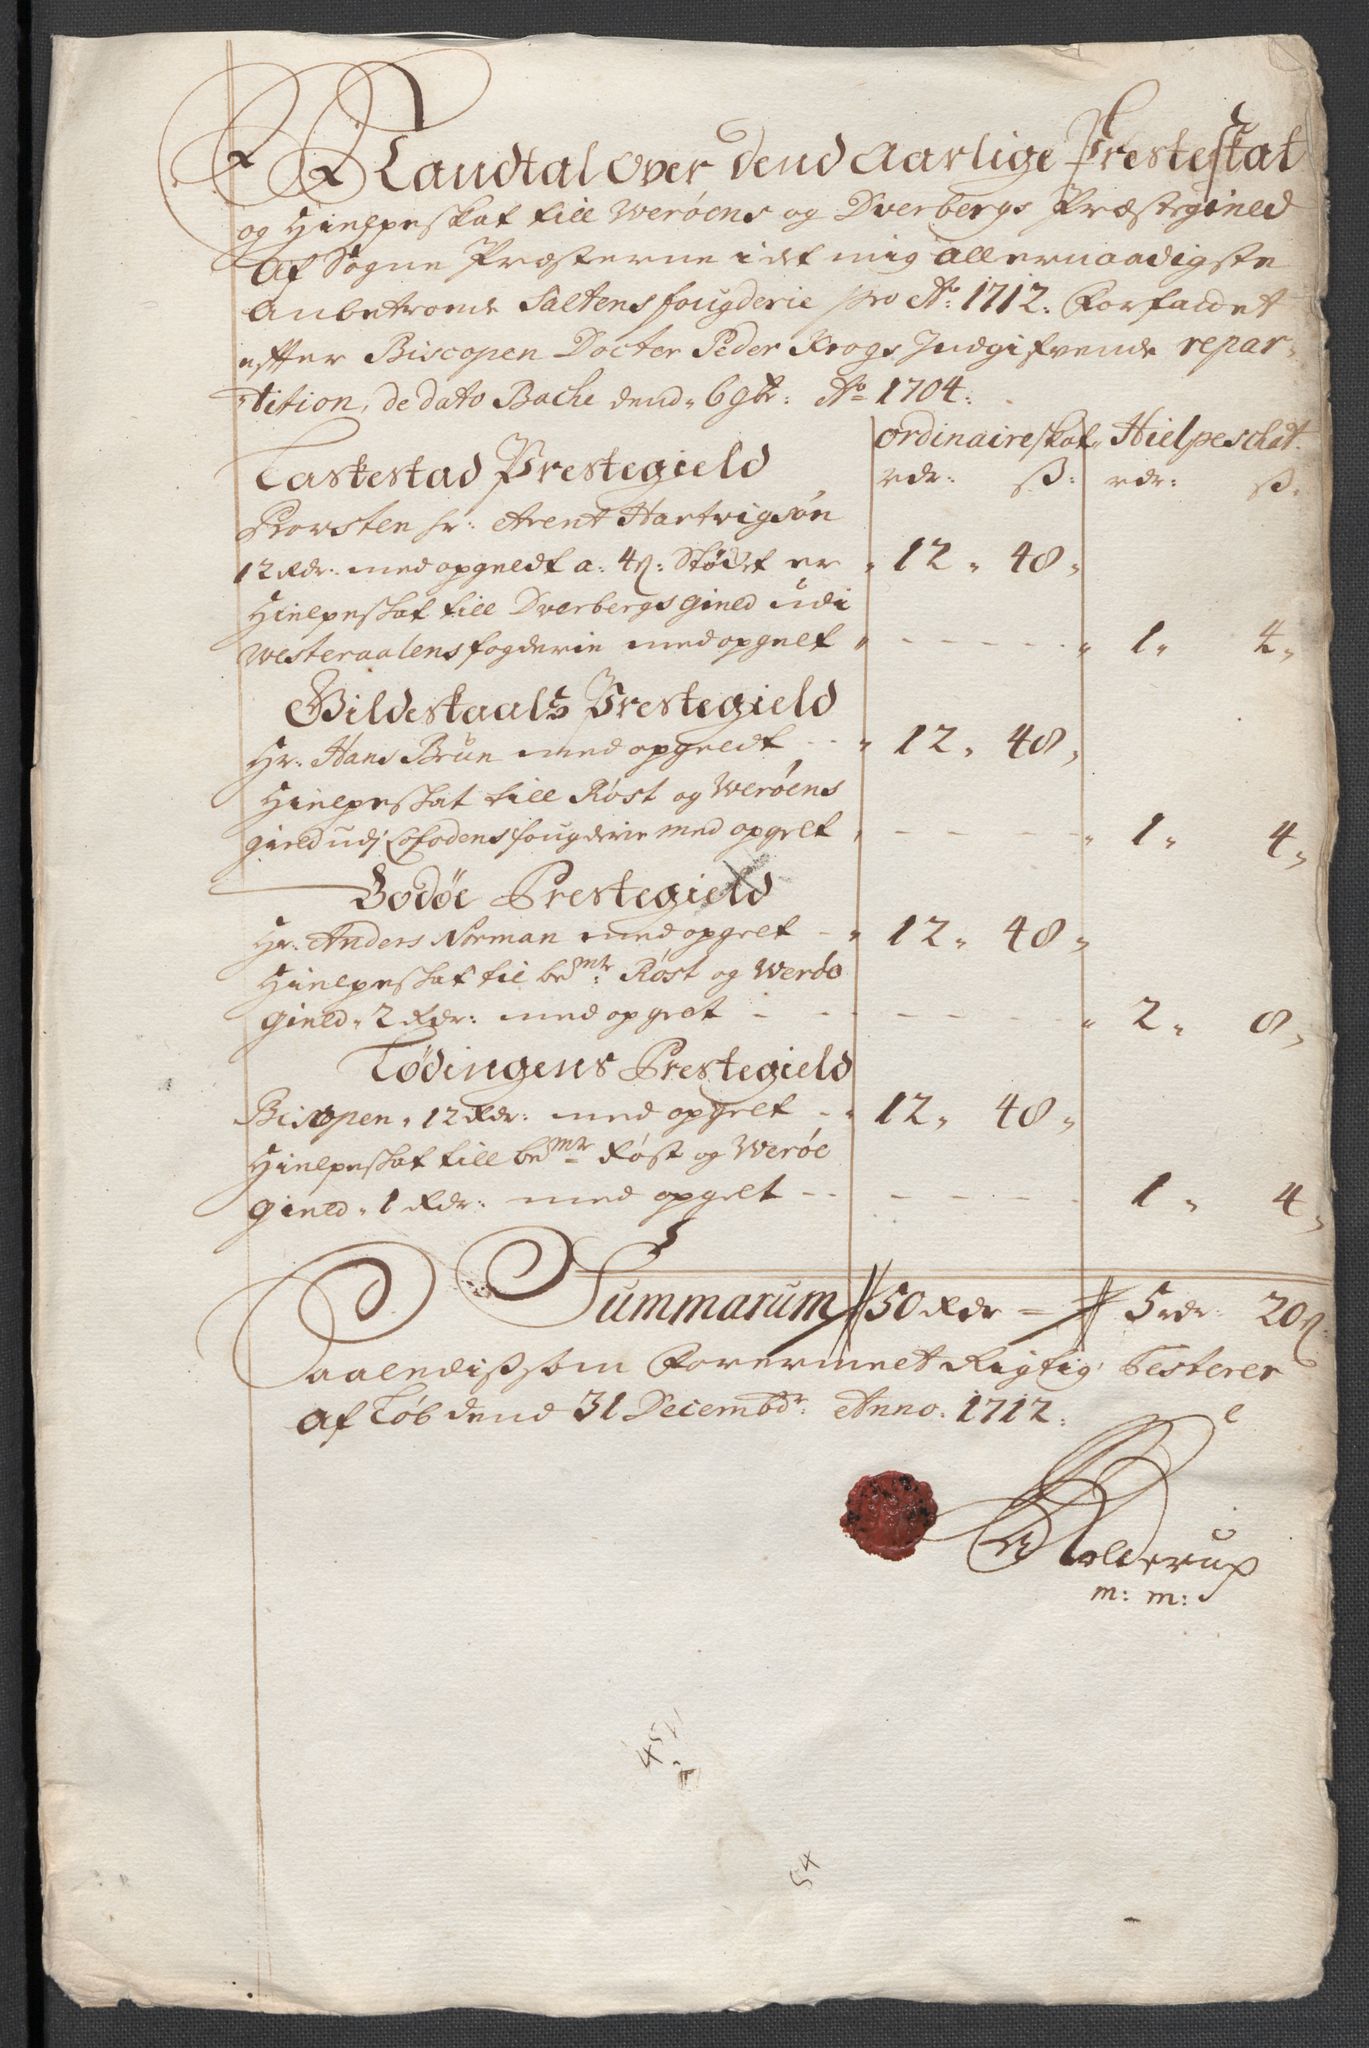 Mandtal over dend aarlige Presteskat
og Hielpeskat till Werøens og Dverbergs Præstegield
af Sogne Præsterne i det mig allernaadigste
anbetroede Saltens fougderie pro Ao: 1712. Forfaldet
effter Biscopen Docter Peder Krogs Indgifvende repar-
tition, de dato Bache dend 6 9br: Ao 1704.
ordinaire skat, Hielpeschat.
Taskestad Prestegield rdr: ß: rdr: ß:
Provsten hr: Arent Hartvigsøn
12 Rdr: med opgeldt a: 4ß: Støchet er 12 " 48 "
Hielpeskat till Dverbergs gield udi
Westeraalens fogderie med opgelt " - - - - - " 1 " 4 "
Gildeskaals Prestegield
Hr. Hans Brun med opgeldt - - " 12 " 48 "
Hielpeskat till Røst og Werøens
gield udj Lofodens fougderie med opgelt - - - - " 1 " 4 "
Bodøe Prestegield
Hr. Anders Norman med opgelt - " 12 " 48 "
Hielpeskat til bemte: Røst og Werøe
gield " 2 Rdr: med opgelt - - - - - - " 2 " 8 "
Lødingens Prestegield
Biscopen " 12 Rdr: med opgelt - " 12 " 48 "
Hielpeskat till bemte Røst og Werøe
gield " 1 Rdr: med opgelt - - - - - - 1 " 4 "
Summarum 50 Rdr - 5 rdr 20ß
Saaledis som Forermeet Rigtig, Testerer
af Løb dend 31 Decembr: Anno: 1712:
Tolderup
m: m:
54